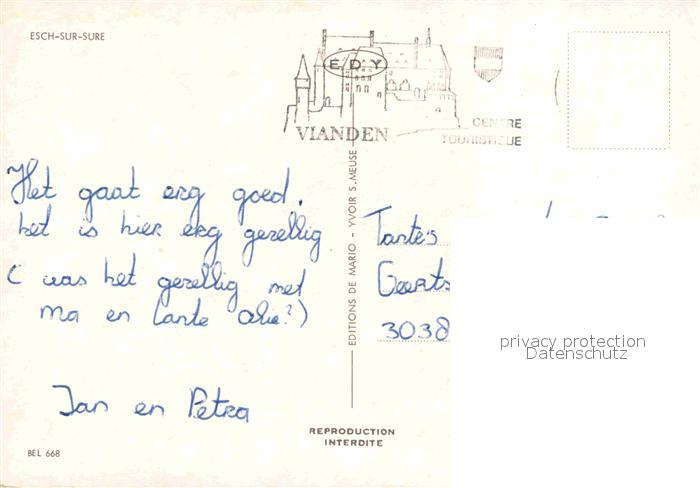 ESCH-SUR-SURE
E D Y
VIANDEN
CENTRE
TOURISTIQUE
Het gaat erg goed.
het is hier erg gezellig
( was het gezellig met
ma en tante Alie?)
Jan en Petra
EDITIONS DE MARIO - YVOIR S. MEUSE
Tante's
Geerts
3038
privacy protection
Datenschutz
REPRODUCTION
INTERDITE
BEL 668